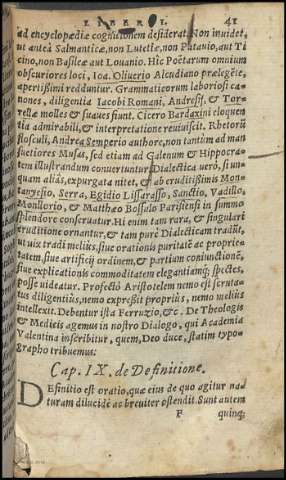 LIBER I. 41
ad encyclopædiæ cognitionem desiderat. Non inuidet,
ut anteà Salmanticæ, non Lutetiæ, non Patauio, aut Ti
cino, non Basileæ aut Louanio. Hic Poëtarum omnium
obscuriores loci, Ioa. Oliuerio Alcudiano prælegēte,
apertißimi redduntur. Grammaticorum laboriosi ca-
nones, diligentia Iacobi Romani, Andresij, & Tor-
rellæ molles & suaues fiunt. Cicero Bardaxini eloquen
tia admirabili, & interpretatione reuiuiscit. Rhetorū
flosculi, Andrea Semperio authore, non tantùm ad man
suetiores Musas, sed etiam ad Galenum & Hippocra-
tem illustrandum conuertuntur. Dialectica uerò, si un-
quam aliàs, expurgata nitet, & ab eruditißimis Mon-
tanyesio, Serra, Egidio Lissarasso, Sanctio, Vadillo,
Monllorio, & Matthæo Bossulo Parisiensi in summo
splendore conseruatur. Hi enim tam rara, & singulari
eruditione ornantur, & tam purè Dialecticam tradūt,
ut uix tradi meliùs, siue orationis puritatē ac proprie-
tatem, siue artificij ordinem, & partium coniunctionē,
siue explicationis commoditatem elegantiamq; spectes,
posse uideatur. Profectò Aristotelem nemo est scruta-
tus diligentiùs, nemo expreßit propriùs, nemo meliùs
intellexit. Debentur ista Ferruzio, &c. De Theologis
& Medicis agemus in nostro Dialogo, qui Academia
Valentina inscribitur, quem, Deo duce, statim typo-
grapho tribuemus.
Cap. IX. de Definitione.
DEfinitio est oratio, quæ eius de quo agitur na-
turam dilucidè ac breuiter ostendit. Sunt autem
F quinq;